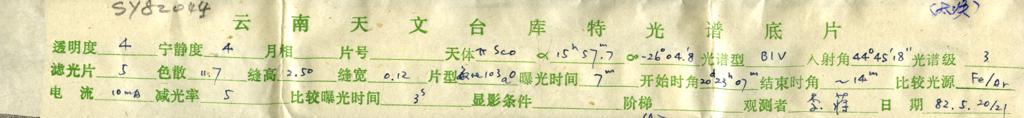 SY82044
云南天文台库特光谱底片
透明度 4 宁静度 4 月相 片号 天体 π Sco α 15ʰ57ᵐ.7 -26°04'.8 光谱型 B1V 入射角 44°45'18" 光谱级 3
滤光片 5 色散 11.7 缝高 2.50 缝宽 0.12 片型 103aO 曝光时间 7ᵐ 开始时角 20ᵈ23ʰ07ᵐ 结束时角 ~14ᵐ 比较光源 Fe/Ar
电流 10mA 减光率 5 比较曝光时间 3ˢ 显影条件 阶梯 观测者 李 蒋 日期 82.5.20/21